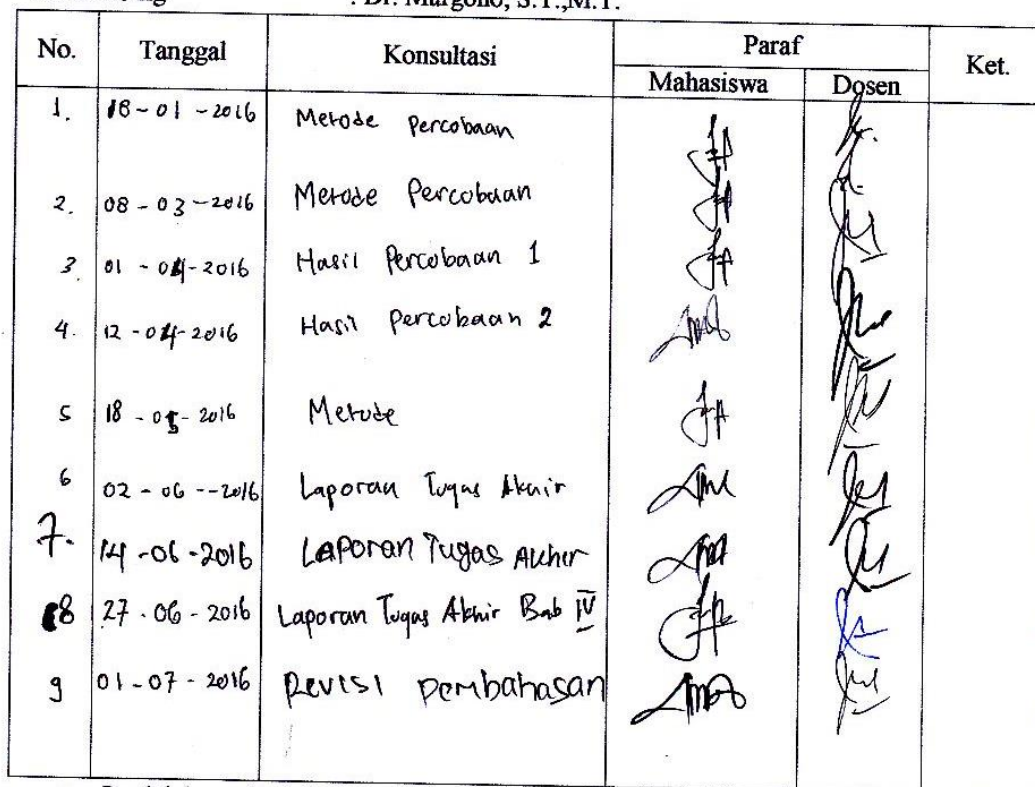 : Dr. Margono, S.T.,M.T.
No. Tanggal Konsultasi Paraf Ket.
Mahasiswa Dosen
1. 18-01-2016 Metode Percobaan
2. 08-03-2016 Metode Percobaan
3. 01-04-2016 Hasil Percobaan 1
4. 12-04-2016 Hasil Percobaan 2
5 18-05-2016 Metode
6 02-06--2016 Laporan Tugas Akhir
7. 14-06-2016 LAPoran Tugas Akhir
8 27-06-2016 Laporan Tugas Akhir Bab IV
9 01-07-2016 Revisi pembahasan